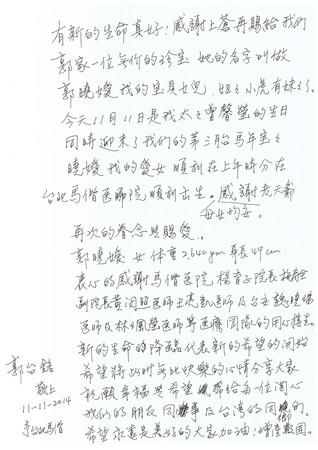 有新的生命真好!感謝上蒼再賜給我們
郭家一位無價的珍寶 她的名字叫做
郭曉嬡 我的寶貝女兒 妞妞小虎有妹了。
今天11月11日是我太太曾馨瑩的生日
同時迎來了我們的第三胎馬年寶寶
曉嬡 我的愛女 順利在上午時分在
台北馬偕医院順利出生。感謝老天爺
母女均安。
再次的眷念與賜愛。
郭曉嬡 女 体重2,640gm 身長49cm.
衷心的感謝馬偕医院 楊育正院長
副院長黃閔照医師王
医師及林 鳳瑩医師等医療團隊的用心接生。
新的生命的降臨 代表新的希望的開始
希望將此時無比快樂的心情分享大家
祝願幸福與希望 帶給每一位関心
我們的朋友 同事 及台湾的同胞們。
希望永遠是美好的大家加油!
郭台銘
敬上
11-11-2014
于台北馬偕